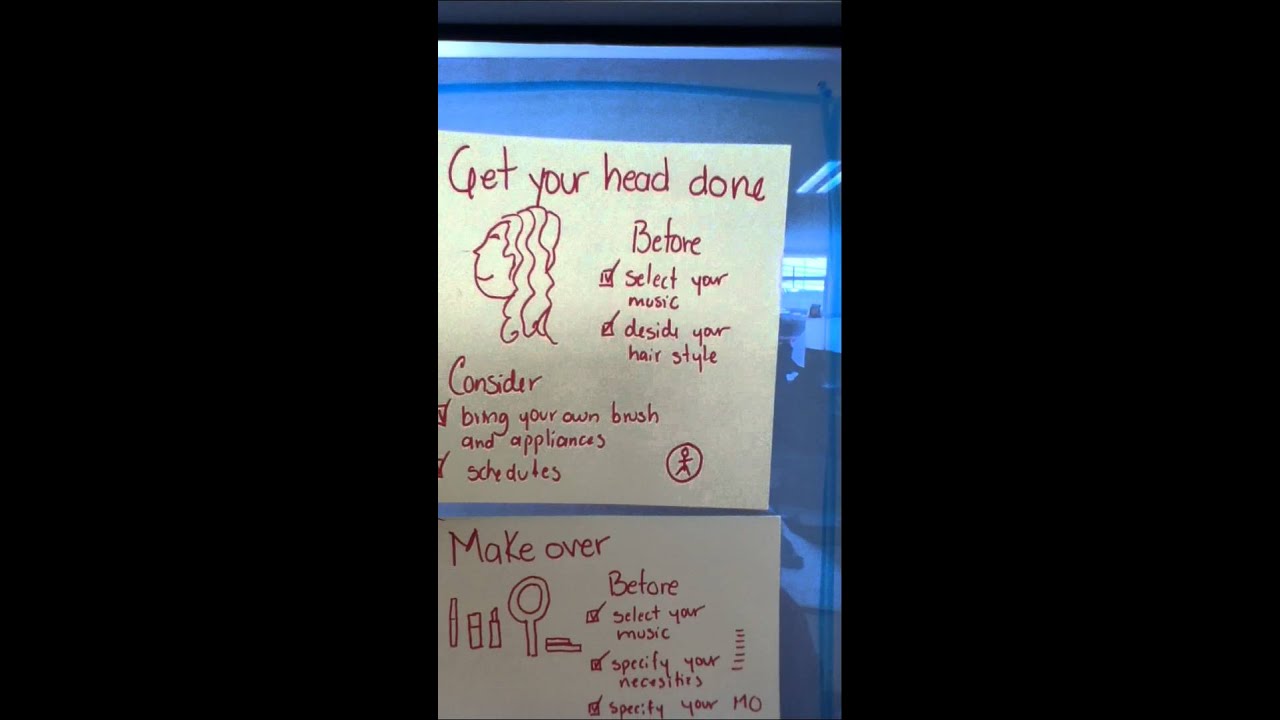 Get your head done
Before
select your
music
deside your
hair style
Consider
bring your own brush
and appliances
schedules
Make over
Before
select your
music
specify your
necesities
specify your MO